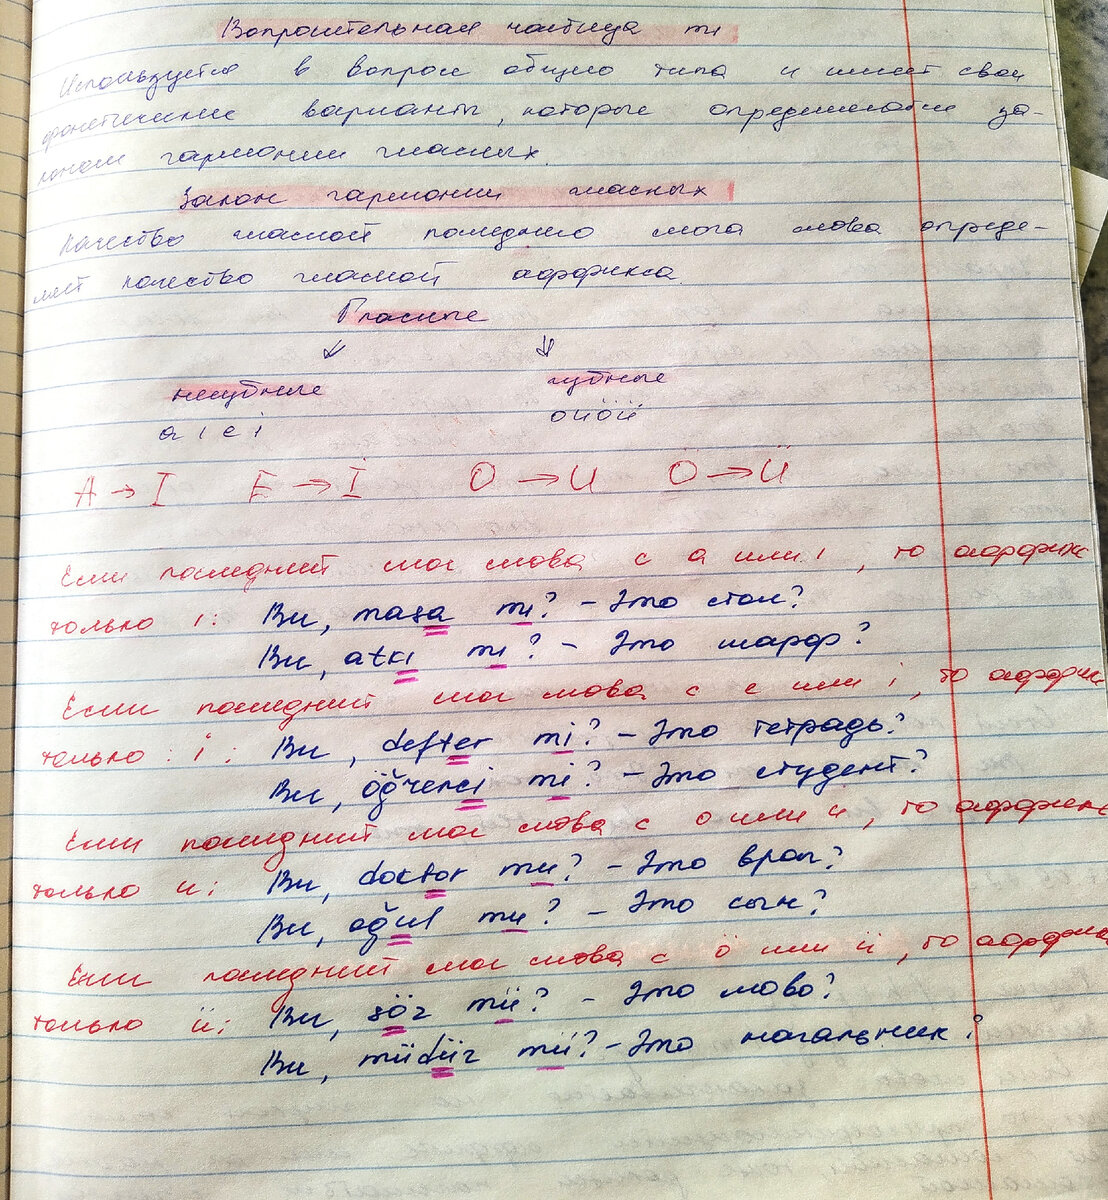 Вопросительная частица mı
Используется в вопросе общего типа и имеет свои
фонетические варианты, которые определяются за-
коном гармонии гласных.
Закон гармонии гласных
Качество гласной последнего слога слова опреде-
ляет качество гласной аффикса.
Гласные
негубные губные
a ı e i o u ö ü
A → I E → İ O → U Ö → Ü
Если последний слог слова с a или ı, то аффикс
только ı: Bu, masa mı? – Это стол?
Bu, atkı mı? – Это шарф?
Если последний слог слова с e или i, то аффикс
только i: Bu, defter mi? – Это тетрадь?
Bu, öğrenci mi? – Это студент?
Если последний слог слова с o или u, то аффикс
только u: Bu, doktor mu? – Это врач?
Bu, oğul mu? – Это сын?
Если последний слог слова с ö или ü, то аффикс
только ü: Bu, söz mü? – Это слово?
Bu, müdür mü? – Это начальник?